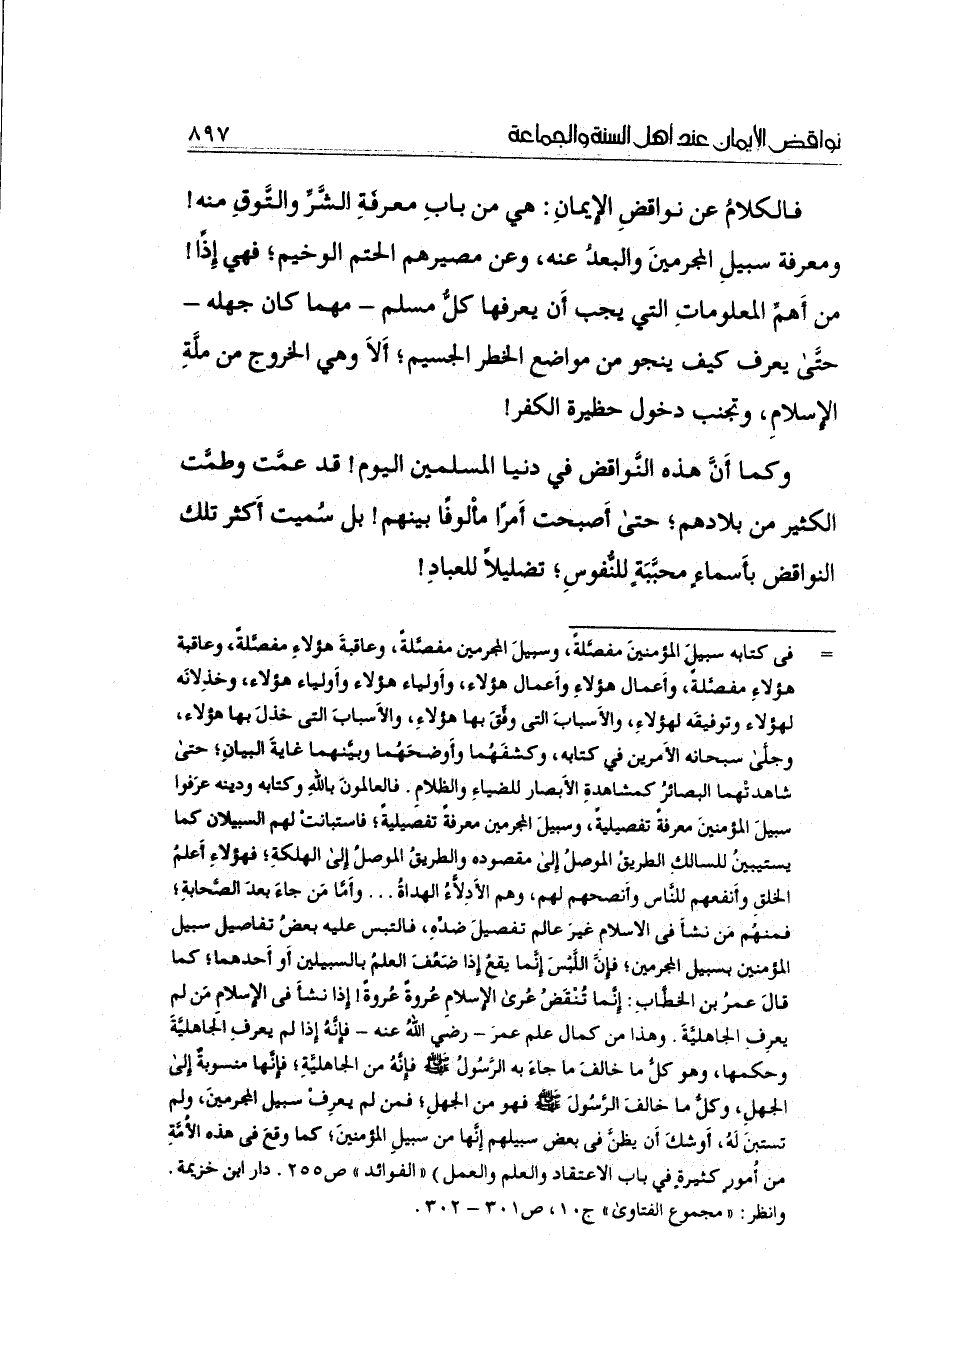 نواقض الإيمان عند أهل السنة والجماعة ٨٩٧
فالكلامُ عن نواقضِ الإيمانِ: هي من بابِ معرفةِ الشَّرِّ والتَّوقِ منه!
ومعرفة سبيلِ المجرمينَ والبعدُ عنه، وعن مصيرهم الحتم الوخيم؛ فهي إذًا!
من أهمِّ المعلوماتِ التي يجب أن يعرفها كلُّ مسلم – مهما كان جهله –
حتَّىٰ يعرف كيف ينجو من مواضع الخطر الجسيم؛ ألاَ وهي الخروج من ملَّةِ
الإسلامِ، وتجنب دخول حظيرة الكفر!
وكما أنَّ هذه النَّواقض في دنيا المسلمين اليوم! قد عمَّت وطمَّت
الكثير من بلادهم؛ حتىٰ أصبحت أمرًا مألوفًا بينهم! بل سُميت أكثر تلك
النواقض بأسماءٍ محبَّبَةٍ للنُّفوسِ؛ تضليلاً للعبادِ!
= فى كتابه سبيلَ المؤمنينَ مفصَّلةً، وسبيلَ المجرمين مفصَّلةً، وعاقبةَ هؤلاءِ مفصَّلةً، وعاقبة
هؤلاءِ مفصَّلةً، وأعمال هؤلاءِ وأعمال هؤلاء، وأولياء هؤلاء وأولياء هؤلاء، وخذلانَه
لهؤلاء وتوفيقَه لهؤلاءِ، والأسبابَ التى وفَّقَ بها هؤلاءِ، والأسبابَ التى خذلَ بها هؤلاء،
وجلَّىٰ سبحانه الأمرين في كتابه، وكشفَهُما وأوضحَهُما وبيَّنهما غايةَ البيانِ؛ حتىٰ
شاهدتْهما البصائرُ كمشاهدةِ الأبصار للضياءِ والظلام. فالعالمونَ باللهِ وكتابه ودينه عرَفوا
سبيلَ المؤمنينَ معرفةً تفصيليةً، وسبيلَ المجرمين معرفةً تفصيليةً؛ فاستبانتْ لهم السبيلان كما
يستبينُ للسالكِ الطريقُ الموصلُ إلىٰ مقصوده والطريقُ الموصلُ إلىٰ الهلكةِ؛ فهؤلاءِ أعلمُ
الخلقِ وأنفعهم للنَّاس وأنصحهم لهم، وهم الأدلاَّءُ الهداةُ... وأمَّا مَن جاءَ بعدَ الصَّحابةِ؛
فمنهُم مَن نشأ فى الاسلام غيرَ عالم تفصيلَ ضدِّهِ، فالتبس عليه بعضُ تفاصيل سبيل
المؤمنين بسبيل المجرمين؛ فإنَّ اللَّبْسَ إنَّما يقعُ إذا ضَعُفَ العلمُ بالسبيلين أو أحدهما؛ كما
قالَ عمرُ بن الخطَّاب: إنَّما تُنْقَضُ عُرىٰ الإسلامِ عُروةً عُروةً! إذا نشأ فى الإسلامِ مَن لم
يعرفِ الجاهليَّةَ. وهذا من كمال علم عمرَ – رضي اللهُ عنه – فإنَّهُ إذا لم يعرفِ الجاهليَّةَ
وحكمها، وهو كلُّ ما خالفَ ما جاءَ به الرَّسُولُ ﷺ فإنَّهُ من الجاهليَّةِ؛ فإنَّها منسوبةٌ إلىٰ
الجهلِ، وكلُّ ما خالف الرَّسُولَ ﷺ فهو من الجهلِ؛ فمن لم يعرفْ سبيل المجرمينَ، ولم
تستبنَ لهُ، أوشكَ أن يظنَّ فى بعض سبيلهم إنَّها من سبيلِ المؤمنينَ؛ كما وقعَ فى هذه الأمَّةِ
من أُمورٍ كثيرةٍ في باب الاعتقاد والعلم والعمل) «الفوائد» ص٢٥٥. دار ابن خزيمة.
وانظر: «مجموع الفتاوىٰ» ج١٠، ص٣٠١ – ٣٠٢.